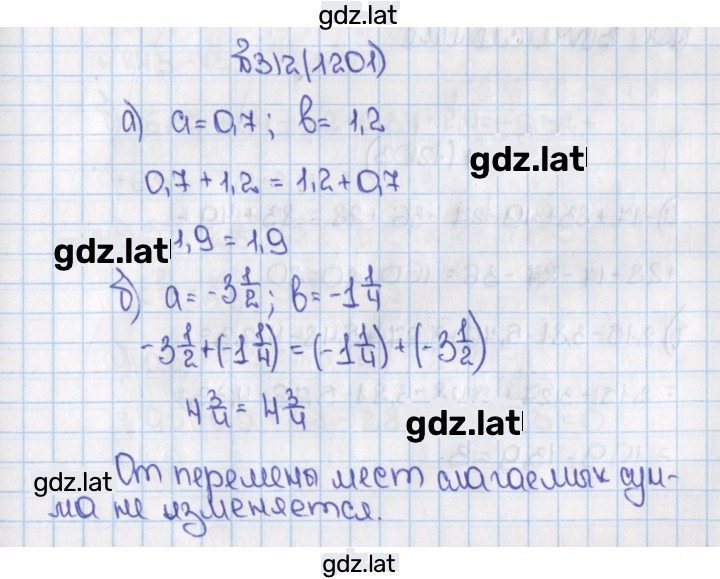 gdz.lat
№312(1201)
а) a=0,7; b= 1,2
gdz.lat
0,7+1,2 = 1,2+0,7
gdz.lat 1,9 = 1,9
б) a= -3 1/2; b= -1 1/4
-3 1/2+(-1 1/4) = (-1 1/4)+(-3 1/2)
4 3/4 = 4 3/4
gdz.lat
gdz.lat От перемены мест слагаемых сум-
ма не изменяется.
gdz.lat